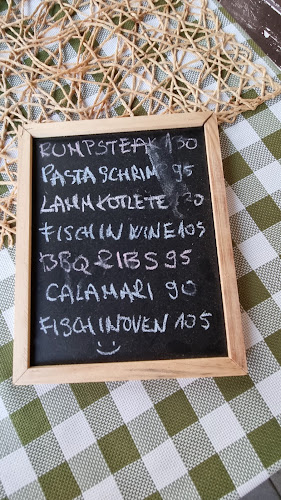 RUMPSTEAK 130
PASTA SCHRIMP 95
LAMMKOTLETE 130
FISCH IN WINE 105
BBQ RIBS 95
CALAMARI 90
FISCH INOVEN 105